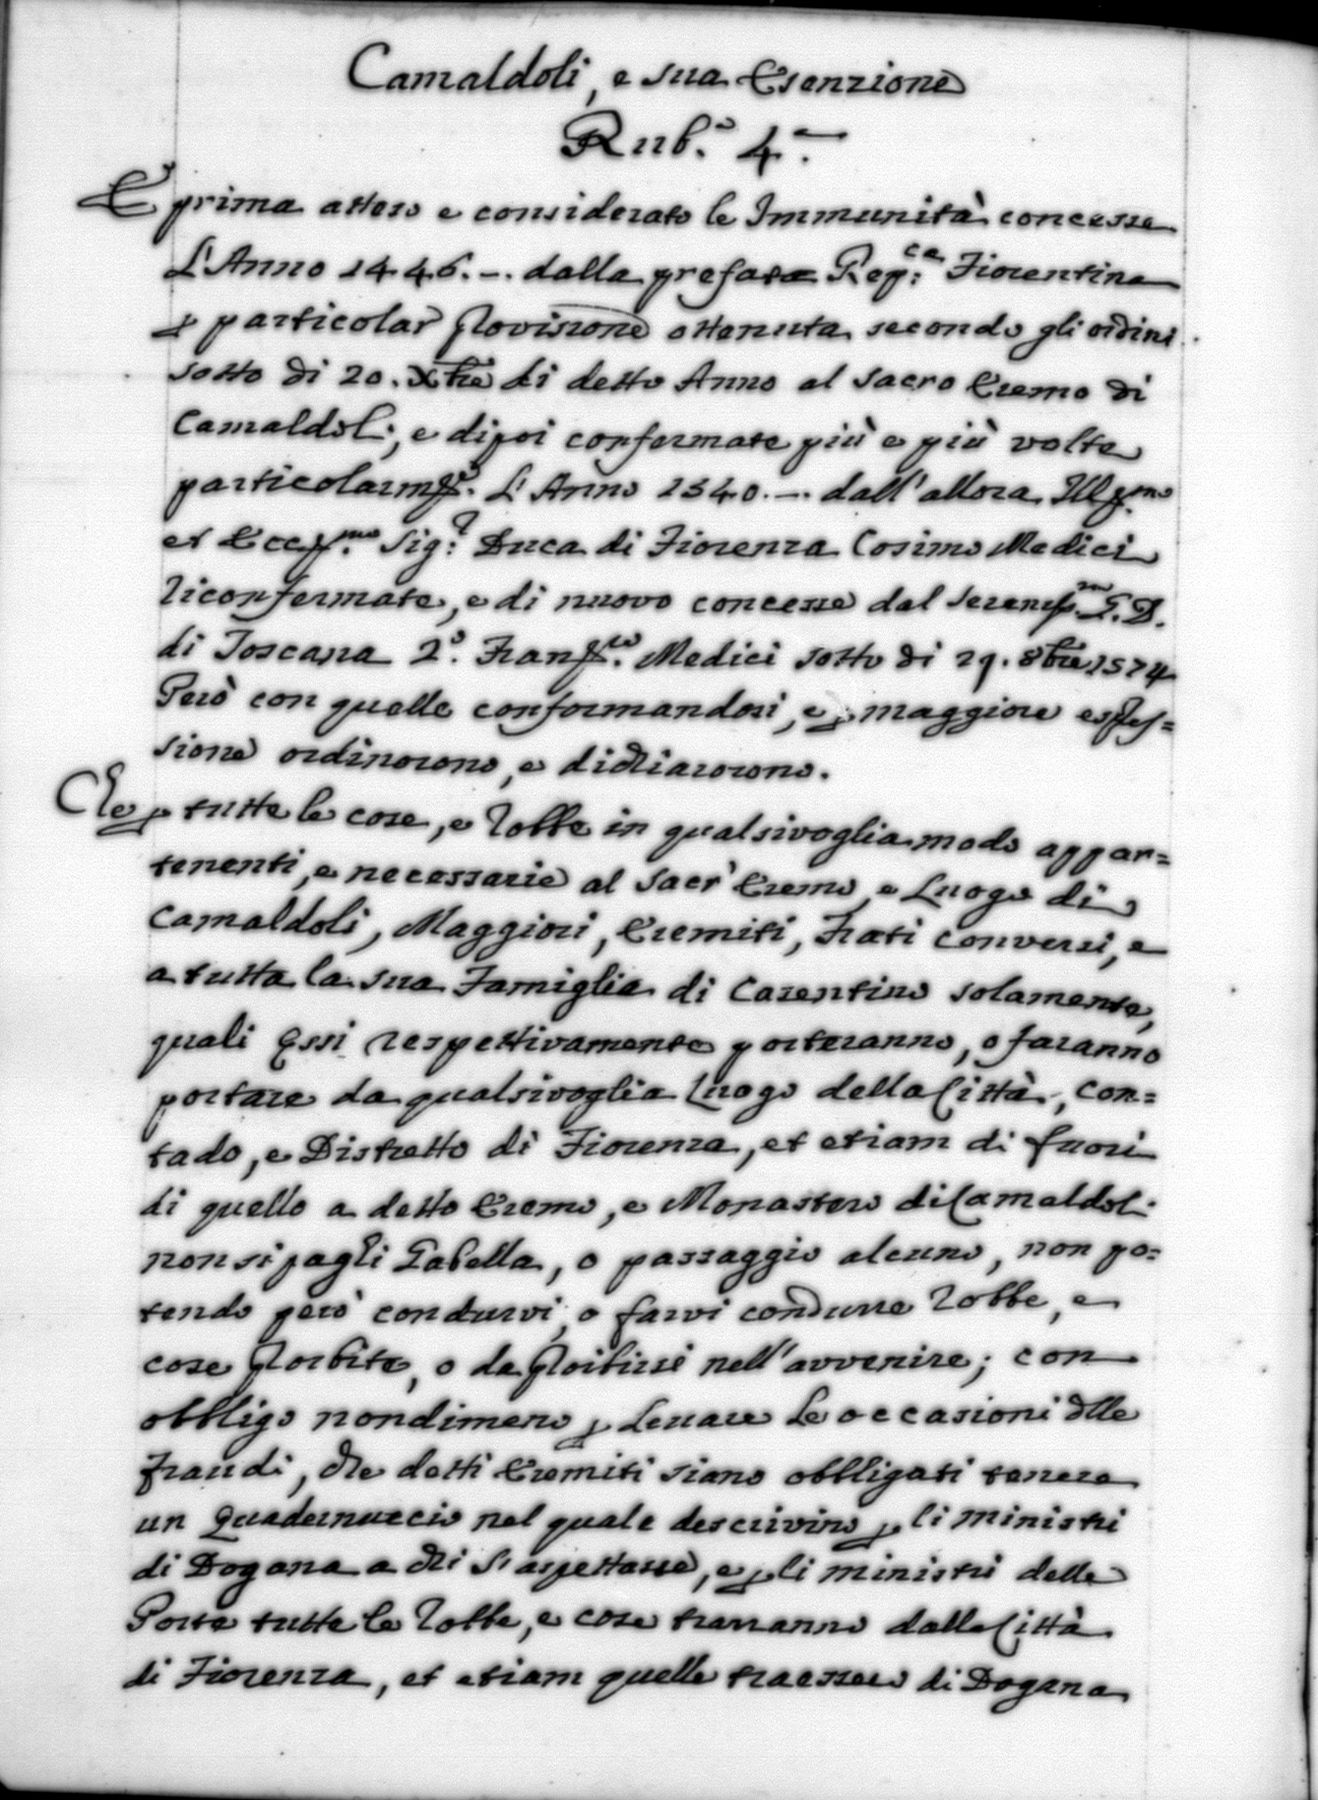 Camaldoli, e sua Esenzione
Rub.a 4.a
E prima atteso e considerato le Immunità concesse
L'Anno 1446. -. dalla prefata Rep:ca Fiorentina
p particolar Provisione ottenuta secondo gli ordini
sotto di 20. Xbre di detto Anno al Sacro Eremo di
Camaldoli, e dipoi confermate più e più volte
particolarmte. L'Anno 1540. -. dall'allora Ill.mo
et Ecc.mo Sig:r Duca di Fiorenza Cosimo Medici
riconfermate, e di nuovo concesse dal Sereniss.mo G. D.
di Toscana 2.o Fran.co Medici sotto di 29. 8bre 1574
Però con quelle conformandosi, e p maggiore espres=
sione ordinorono, e dichiarorono.
Che p tutte le cose, e robbe in qualsivoglia modo appar=
tenenti, e necessarie al Sacr' Eremo, e Luogo di
Camaldoli, Maggiori, Eremiti, Frati conversi, e
a tutta la sua Famiglia di Casentino solamente,
quali Essi respettivamente porteranno, o faranno
portare da qualsivoglia Luogo della Città, con=
tado, e Distretto di Fiorenza, et etiam di fuori
di quello a detto Eremo, e Monastero di Camaldoli
non si paghi Gabella, o passaggio alcuno, non po=
tendo però condurvi, o farvi condurre robbe, e
cose proibite, o da proibirsi nell'avvenire; con
obbligo nondimeno p Levare le occasioni delle
fraudi, che detti Eremiti siano obbligati tenere
un Quadernuccio nel quale descrivino p li ministri
di Dogana a chi s'aspettasse, e p li ministri delle
Porte tutte le robbe, e cose trarranno dalla Città
di Fiorenza, et etiam quelle traessero di Dogana